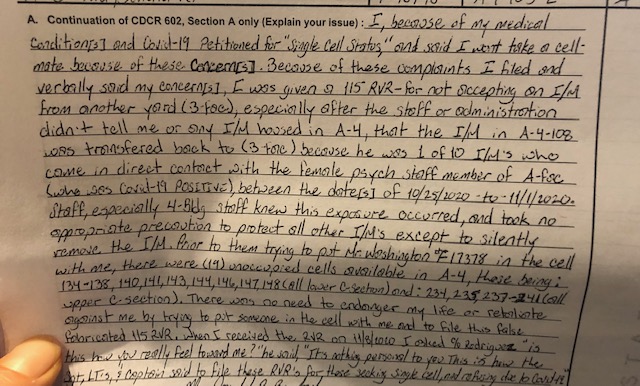 A. Continuation of CDCR 602, Section A only (Explain your issue) : I, because of my medical
Condition[s] and Covid-19 Petitioned for "Single Cell Status," and said I wont take a cell-
mate because of these Concern[s]. Because of these complaints I filed and
verbally said my concern[s], I was given a 115 RVR-for not accepting an I/M
from another yard (3-fac), especially after the staff or administration
didn't tell me or any I/M housed in A-4, that the I/M in A-4-108
was transfered back to (3-fac) because he was 1 of 10 I/M's who
came in direct contact with the female psych staff member of A-fac
(who was Covid-19 POSITIVE), between the date[s] of 10/25/2020-to-11/1/2020.
Staff, especially 4-Bldg staff knew this exposure occurred, and took no
appropriate precaution to protect all other I/M's except to silently
remove the I/M. Prior to them trying to put Mr. Washington F17378 in the cell
with me, there were (19) unoccupied cells available in A-4, these being:
134-138, 140, 141, 143, 144, 146, 147, 148 (all lower C-section) and: 234, 235, 237-241 (all
upper C-section). There was no need to endanger my life or retaliate
against me by trying to put someone in the cell with me and to file this false
fabricated 115 RVR. When I received the RVR on 11/8/2020 I asked % Rodriquez "is
this how you really feel toward me?" he said, "It's nothing personal to you This is how the
LT's, & Captain said to file these RVR's for those seeking single cell, and refusing due to Covid-19"